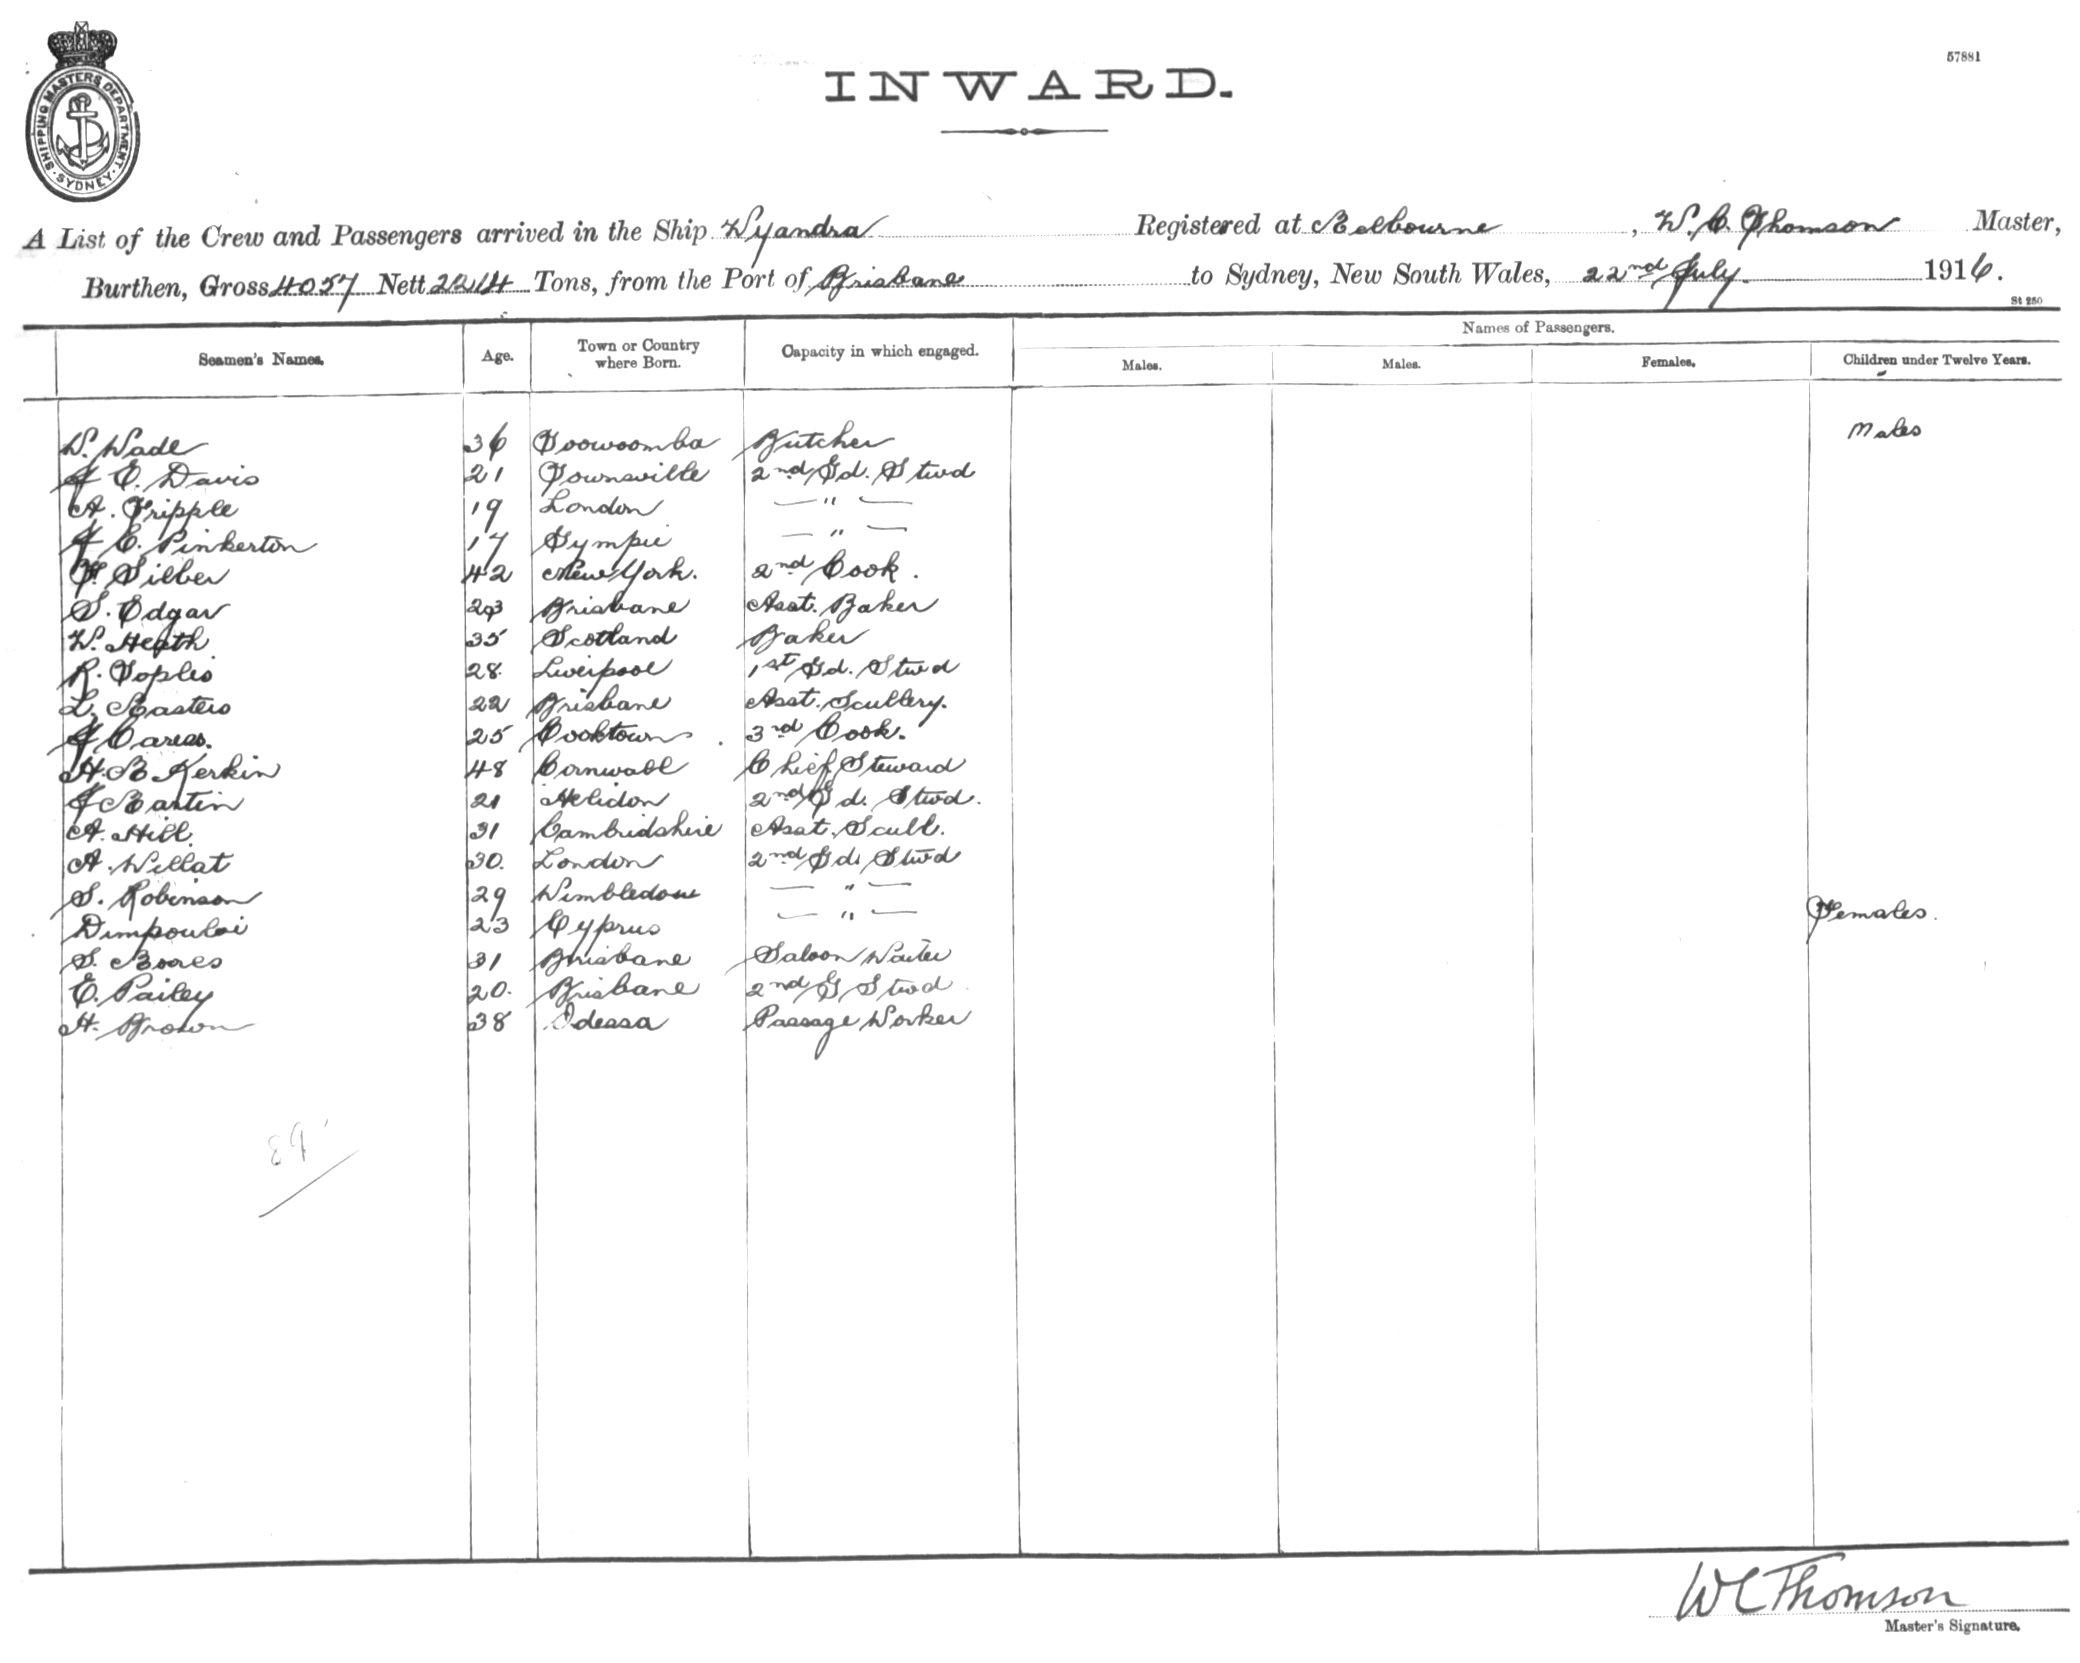 57881
SHIPPING MASTERS DEPARTMENT SYDNEY
INWARD.
A List of the Crew and Passengers arrived in the Ship Wyandra Registered at Melbourne, W. C. Thomson Master,
Burthen, Gross 4057 Nett 2214 Tons, from the Port of Brisbane to Sydney, New South Wales, 22nd July 1916.
St 250
Names of Passengers.
Seamen's Names. Age. Town or Country where Born. Capacity in which engaged. Males. Males. Females. Children under Twelve Years.
Males
W. Wade 36 Toowoomba Butcher
J E. Davis 21 Townsville 2nd Sd. Stwd
A. Tripple 19 London — " —
J C. Pinkerton 17 Gympie — " —
F. Silber 42 New York. 2nd Cook.
S. Edgar Brisbane Asst. Baker
W. Heath 35 Scotland Baker
R. Toplis 28. Liverpool 1st Sd. Stwd
L. Masters 22 Brisbane Asst. Scullery.
J 25 Cooktown 3rd Cook.
H. B Kerkin 48 Cornwall Chief Steward
J Martin 21 Helidon 2nd Sd. Stwd.
A. Hill. 31 Cambridshire Asst. Scull.
A. Willat 30. London 2nd Sd. Stwd
S. Robinson 29 Wimbledon — " —
23 Cyprus — " —
Females.
S. 31 Brisbane Saloon Waiter
E. Pailey 20. Brisbane 2nd S Stwd
H. Brown 38 Odessa Passage Worker
WCThomson
Master's Signature.